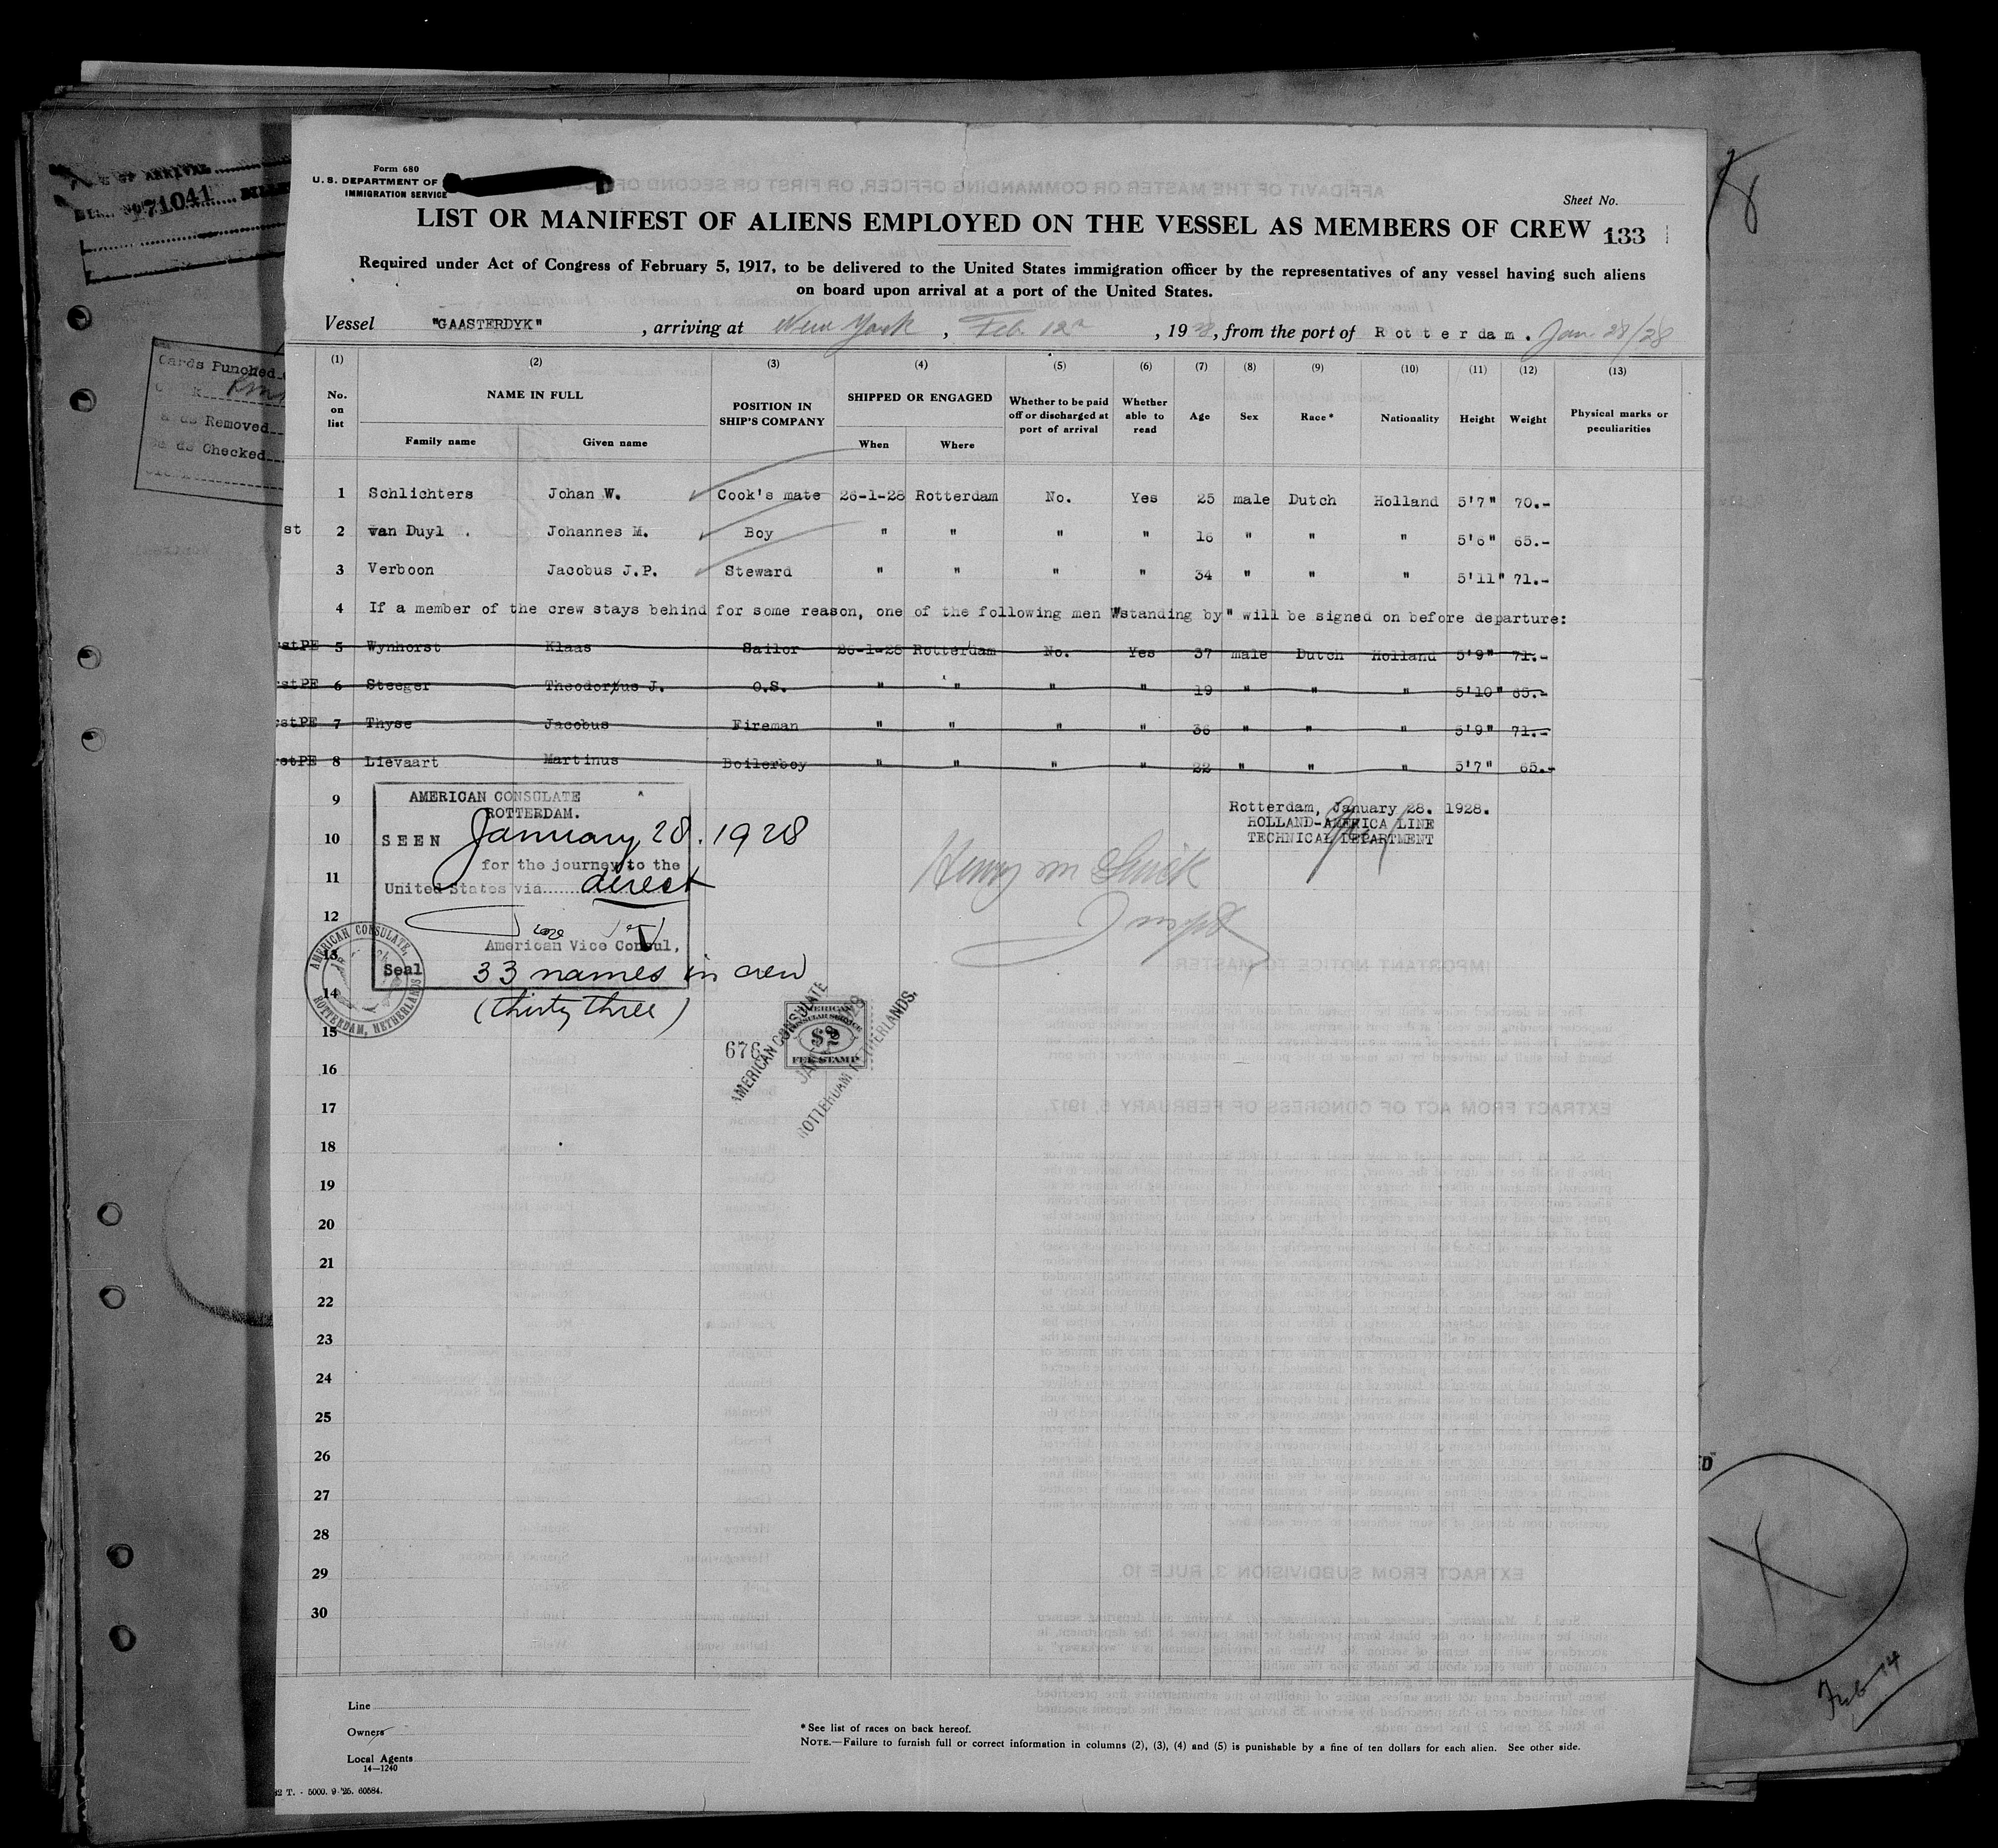 Form 680
U. S. DEPARTMENT OF
IMMIGRATION SERVICE
Sheet No.
LIST OR MANIFEST OF ALIENS EMPLOYED ON THE VESSEL AS MEMBERS OF CREW 133
Required under Act of Congress of February 5, 1917, to be delivered to the United States immigration officer by the representatives of any vessel having such aliens
on board upon arrival at a port of the United States.
Vessel "GAASTERDYK" , arriving at New York , Feb. 12 , 1928, from the port of Rotterdam. Jan 28/28
(1) (2) (3) (4) (5) (6) (7) (8) (9) (10) (11) (12) (13)
No. on list NAME IN FULL Family name Given name POSITION IN SHIP'S COMPANY SHIPPED OR ENGAGED When Where Whether to be paid off or discharged at port of arrival Whether able to read Age Sex Race* Nationality Height Weight Physical marks or peculiarities
1 Schlichters Johan W. Cook's mate 26-1-28 Rotterdam No. Yes 25 male Dutch Holland 5'7" 70.-
st 2 van Duyl . Johannes M. Boy " " " " 16 " " " 5'6" 65.-
3 Verboon Jacobus J.P. Steward " " " " 34 " " " 5'11" 71.-
4 If a member of the crew stays behind for some reason, one of the following men "standing by" will be signed on before departure:
stPE 5 Wynhorst Klaas Sailor 26-1-28 Rotterdam No. Yes 37 male Dutch Holland 5'9" 71.-
stPE 6 Steeger Theodorus J. O.S. " " " " 19 " " " 5'10" 65.-
stPE 7 Thyse Jacobus Fireman " " " " 36 " " " 5'9" 71.-
stPE 8 Lievaart Martinus Boilerboy " " " " 22 " " " 5'7" 65.-
9
10
11
12
13
14
15
16
17
18
19
20
21
22
23
24
25
26
27
28
29
30
AMERICAN CONSULATE
ROTTERDAM.
SEEN January 28. 1928
for the journey to the
United States via direct
American Vice Consul,
Seal
33 names in crew
(thirty three)
AMERICAN CONSULATE
ROTTERDAM, NETHERLANDS
Rotterdam, January 28. 1928.
HOLLAND-AMERICA LINE
TECHNICAL DEPARTMENT
676
AMERICAN
CONSULAR SERVICE
$2
FEE STAMP
AMERICAN CONSULATE
ROTTERDAM NETHERLANDS.
Line
Owners
Local Agents
14—1240
*See list of races on back hereof.
NOTE.—Failure to furnish full or correct information in columns (2), (3), (4) and (5) is punishable by a fine of ten dollars for each alien. See other side.
T. - 5000. 9-'25. 60584.
OF ARRIVAL
71041
Cards Punched
Removed
Checked
Feb 14